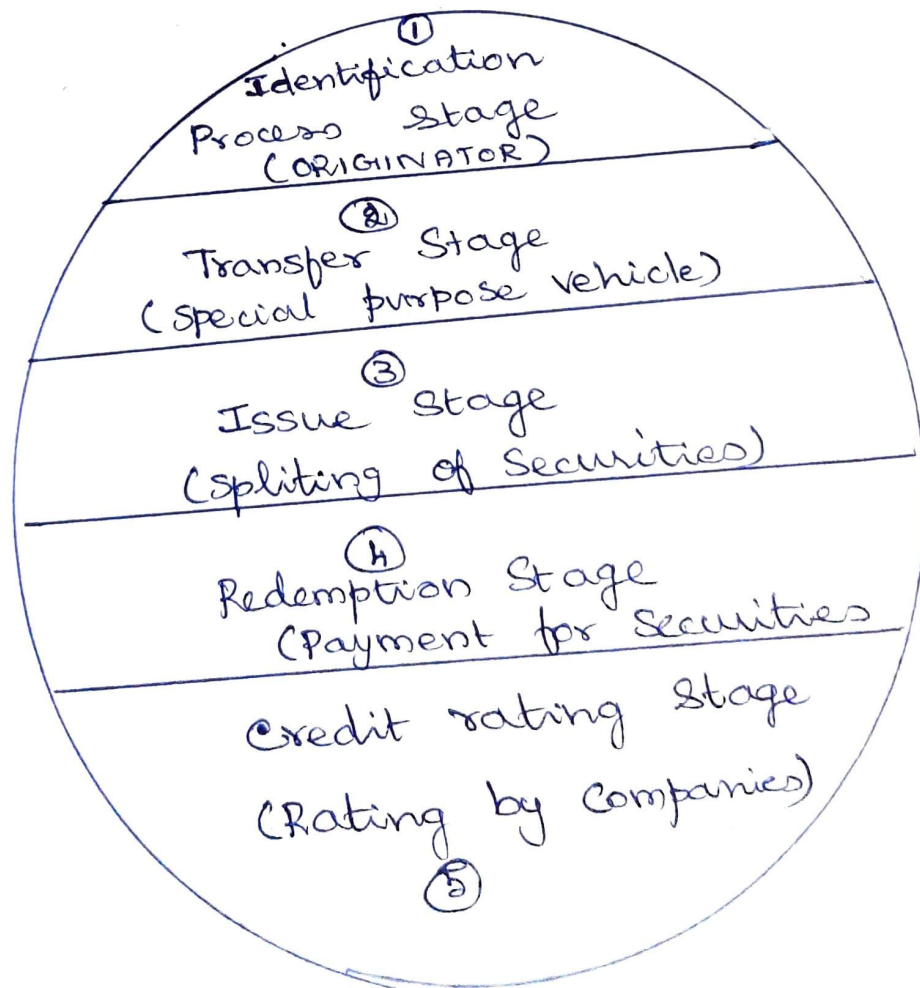 ①
Identification
Process Stage
(ORIGINATOR)
②
Transfer Stage
(special purpose vehicle)
③
Issue Stage
(Spliting of Securities)
④
Redemption Stage
(Payment for Securities
Credit rating Stage
(Rating by Companies)
⑤